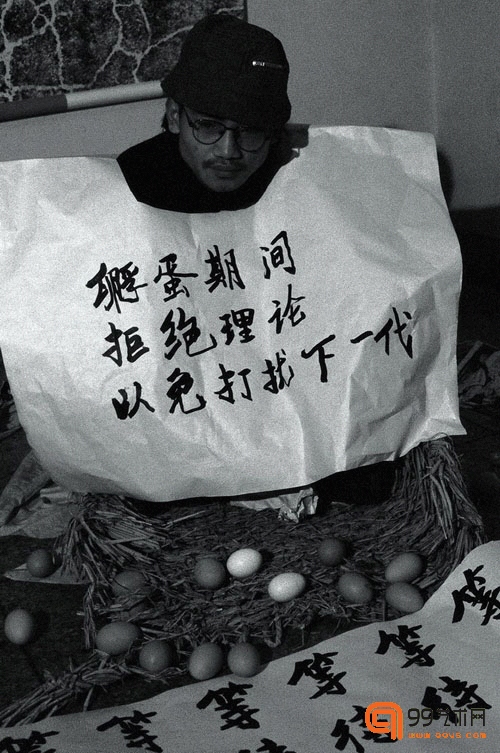 孵蛋期间
拒绝理论
以免打扰下一代
等等等等等等
待待
99艺术网
www.99ys.com